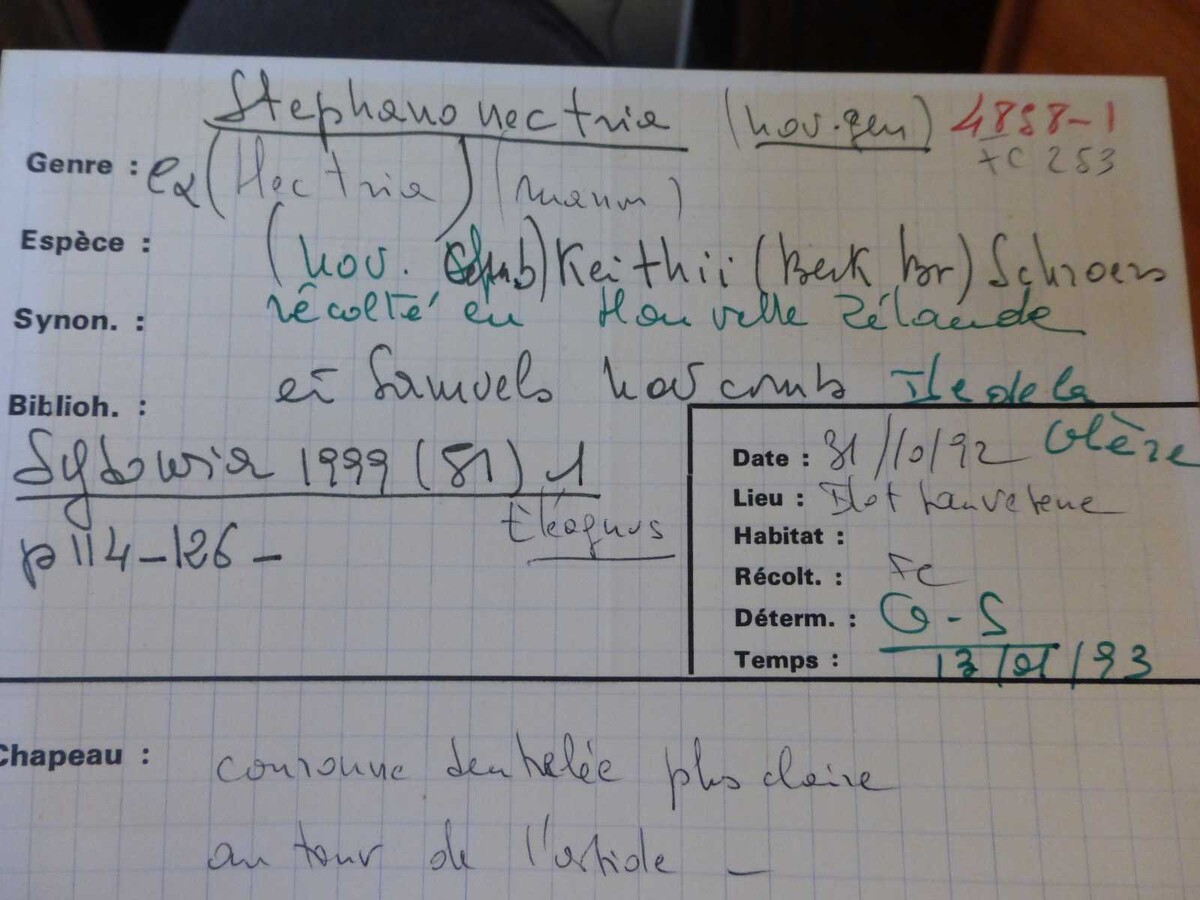 Stephanonectria (nov. gen) 4858-1
FC 253
Genre : ex (Nectria) (mamm)
Espèce : (nov. comb) Keithii (Berk Br) Schroers
Synon. : récolté en Nouvelle Zélande
et Samuels nov comb Ile de la
Biblioh. :
Sydowia 1999 (51) 1
p 114-126 -
Eléagnus
Date : 31/10/92
Lieu : Ilot
Habitat :
Récolt. : FC
Déterm. : G-S
Temps : 13/01/93
Chapeau : couronne dentelée plus claire
autour de l'ostiole -